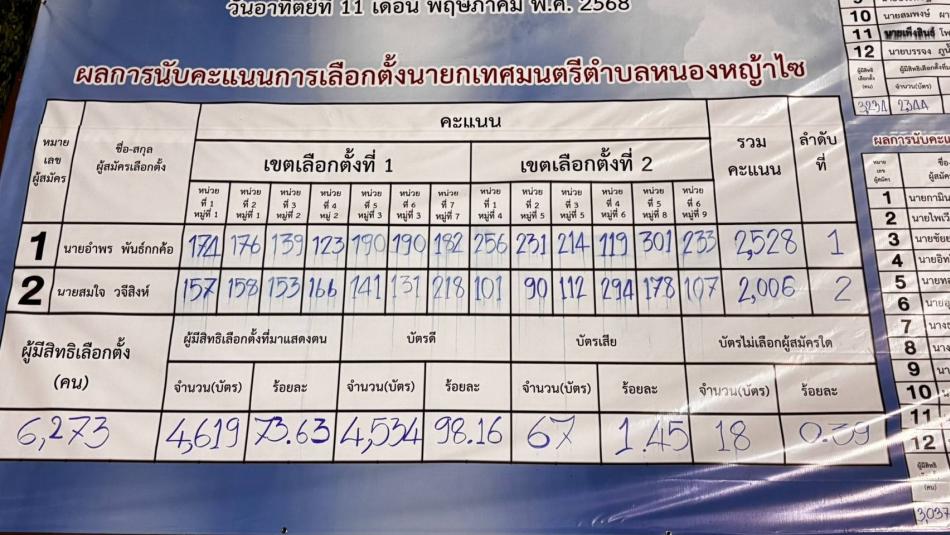 วันอาทิตย์ที่ 11 เดือน พฤษภาคม พ.ศ. 2568
ผลการนับคะแนนการเลือกตั้งนายกเทศมนตรีตำบลหนองหญ้าไซ
หมายเลขผู้สมัคร ชื่อ-สกุล ผู้สมัครเลือกตั้ง คะแนน รวมคะแนน ลำดับที่
เขตเลือกตั้งที่ 1 เขตเลือกตั้งที่ 2
หน่วย หน่วย หน่วย หน่วย หน่วย หน่วย หน่วย หน่วย หน่วย หน่วย หน่วย หน่วย หน่วย
ที่ 1 ที่ 2 ที่ 3 ที่ 4 ที่ 5 ที่ 6 ที่ 7 ที่ 1 ที่ 2 ที่ 3 ที่ 4 ที่ 5 ที่ 6
หมู่ที่ 1 หมู่ที่ 1 หมู่ที่ 2 หมู่ 2 หมู่ที่ 3 หมู่ที่ 3 หมู่ที่ 7 หมู่ที่ 4 หมู่ที่ 5 หมู่ที่ 5 หมู่ที่ 6 หมู่ที่ 8 หมู่ที่ 9
1 นายอำพร พันธ์กกค้อ 176 139 123 190 190 182 256 231 214 119 301 233 2,528 1
2 นายสมใจ วจีสิงห์ 157 158 153 166 141 131 218 101 90 112 294 178 107 2,006 2
ผู้มีสิทธิเลือกตั้ง (คน) ผู้มีสิทธิเลือกตั้งที่มาแสดงตน บัตรดี บัตรเสีย บัตรไม่เลือกผู้สมัครใด
จำนวน(บัตร) ร้อยละ จำนวน(บัตร) ร้อยละ จำนวน(บัตร) ร้อยละ จำนวน(บัตร) ร้อยละ
6,273 4,619 73.63 4,534 98.16 67 1.45 18 0.39
10 นายสมพงษ์
11
12 นายบรรจง
ผู้มีสิทธิเลือกตั้ง (คน)
จำนวน(บัตร)
3,234 2344
ผลการนับคะแ
หมายเลขผู้สมัคร
1 นายกามิน
2 นายไพเว
3 นายชัยย
4 นายอิท
5 นายท
6 นาย
7 นาง
8 นาง
9 นา
10
11
12
ผู้มีสิทธิ
(คน)
3,037